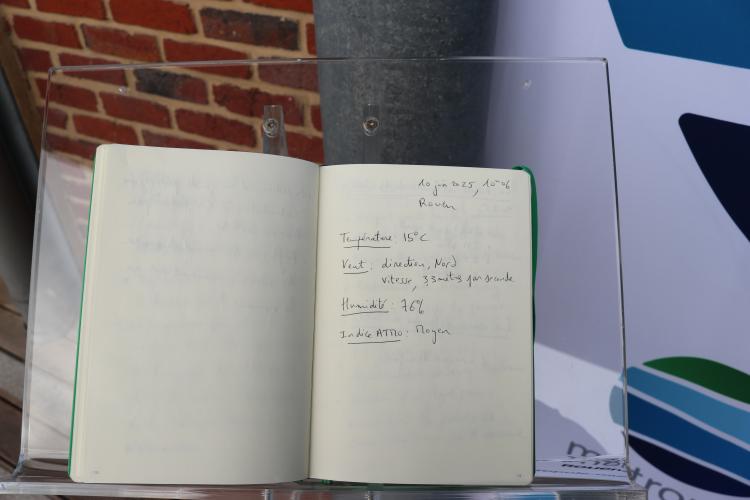 10 juin 2025, 10h06
Rouen
Température : 15°C
Vent : direction, Nord
vitesse, 3,3 mètres par seconde
Humidité : 76%
Indice ATMO : Moyen
métro